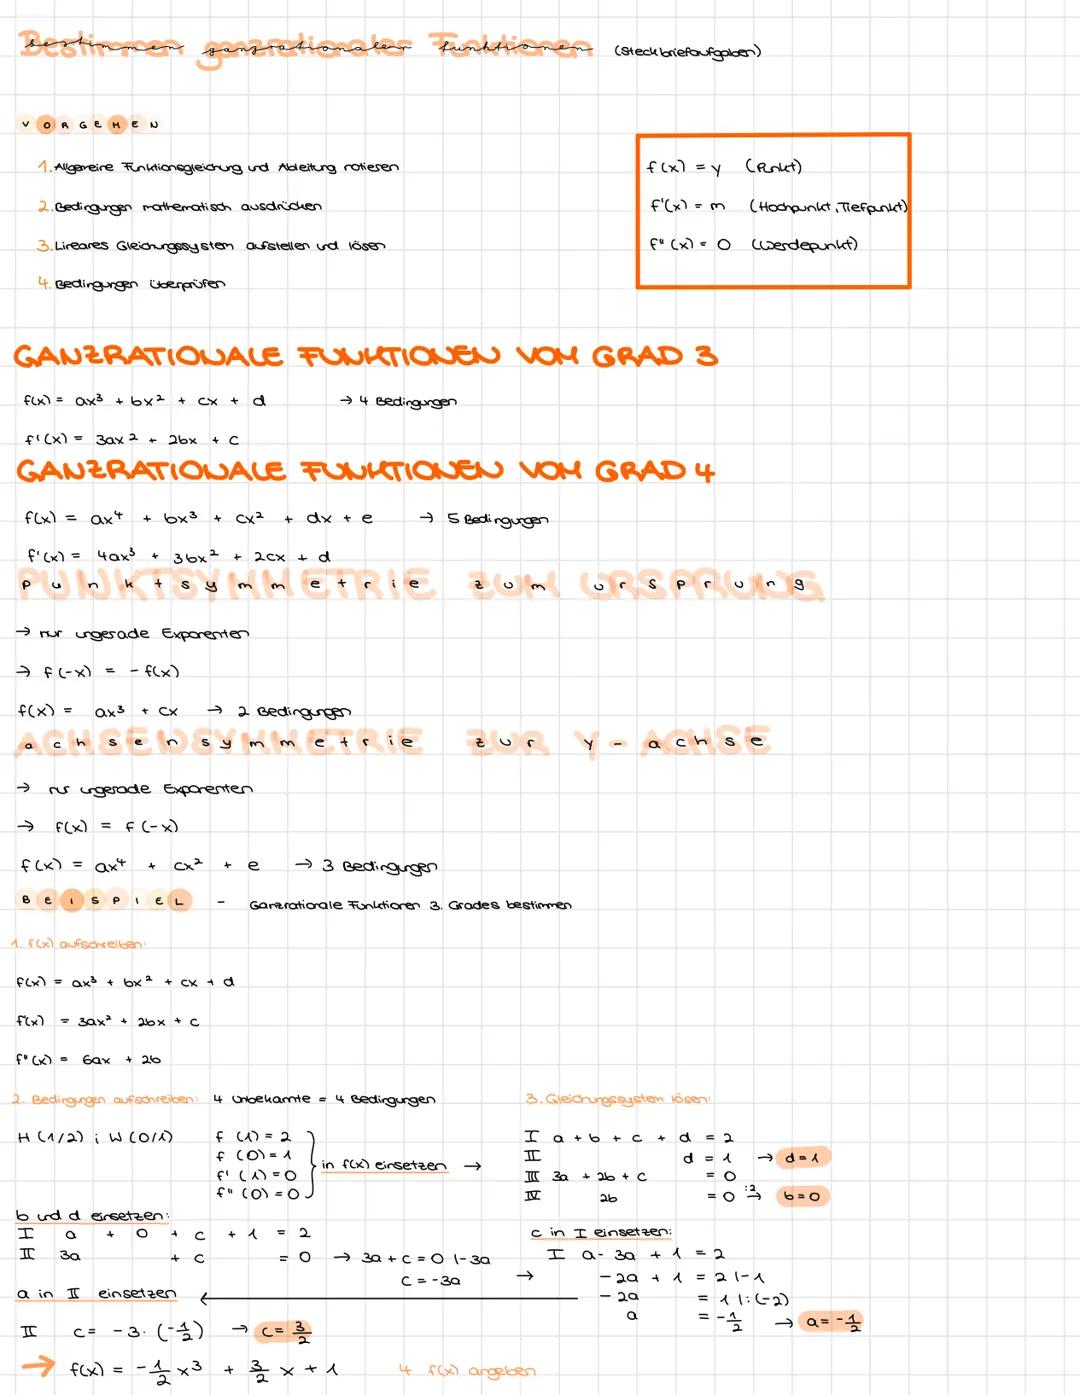 Bestimmen ganzrationaler Funktionen (Steckbriefaufgaben)
VORGEHEN
1. Allgemeine Funktionsgleichung und Ableitung notieren
2. Bedingungen mathematisch ausdrücken
3. Lineares Gleichungssystem aufstellen und lösen
4. Bedingungen überprüfen
f(x) = y (Punkt)
f'(x) = m (Hochpunkt, Tiefpunkt)
f"(x) = 0 (Wendepunkt)
GANZRATIONALE FUNKTIONEN VOM GRAD 3
f(x) = ax³ + bx² + cx + d → 4 Bedingungen
f'(x) = 3ax² + 2bx + c
GANZRATIONALE FUNKTIONEN VOM GRAD 4
f(x) = ax⁴ + bx³ + cx² + dx + e → 5 Bedingungen
f'(x) = 4ax³ + 3bx² + 2cx + d
PUNKTSYMMETRIE ZUM URSPRUNG
→ nur ungerade Exponenten
→ f(-x) = - f(x)
f(x) = ax³ + cx → 2 Bedingungen
ACHSENSYMMETRIE ZUR Y-ACHSE
→ nur ungerade Exponenten
→ f(x) = f(-x)
f(x) = ax⁴ + cx² + e → 3 Bedingungen
BEISPIEL - Ganzrationale Funktionen 3. Grades bestimmen
1. f(x) aufschreiben:
f(x) = ax³ + bx² + cx + d
f'(x) = 3ax² + 2bx + c
f"(x) = 6ax + 2b
2. Bedingungen aufschreiben: 4 Unbekannte = 4 Bedingungen
H (1/2) ; W (0/1)
f (1) = 2
f (0) = 1
f' (1) = 0
f" (0) = 0
in f(x) einsetzen →
3. Gleichungssystem lösen:
I a + b + c + d = 2
II d = 1 → d = 1
III 3a + 2b + c = 0
IV 2b = 0 :2 → b = 0
b und d einsetzen:
I a + 0 + c + 1 = 2
II 3a + c = 0 → 3a + c = 0 |-3a
c = -3a →
c in I einsetzen:
I a - 3a + 1 = 2
- 2a + 1 = 2 |-1
- 2a = 1 |:(-2)
a = -1/2 → a = -1/2
a in II einsetzen ←
II c = -3 · (-1/2) → c = 3/2
→ f(x) = -1/2 x³ + 3/2 x + 1
4 f(x) angeben